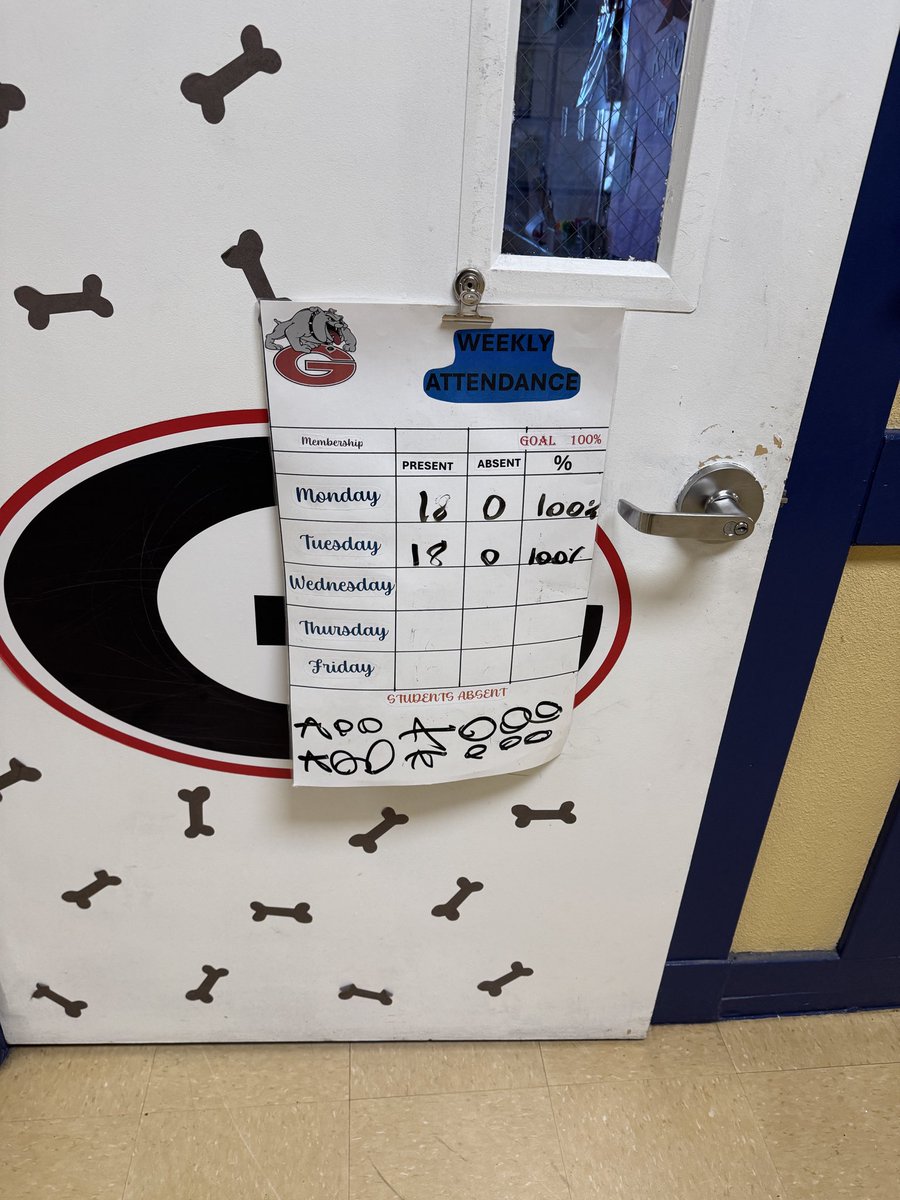 G
WEEKLY
ATTENDANCE
Membership GOAL 100%
PRESENT ABSENT %
Monday 18 0 100%
Tuesday 18 0 100%
Wednesday
Thursday
Friday
STUDENTS ABSENT